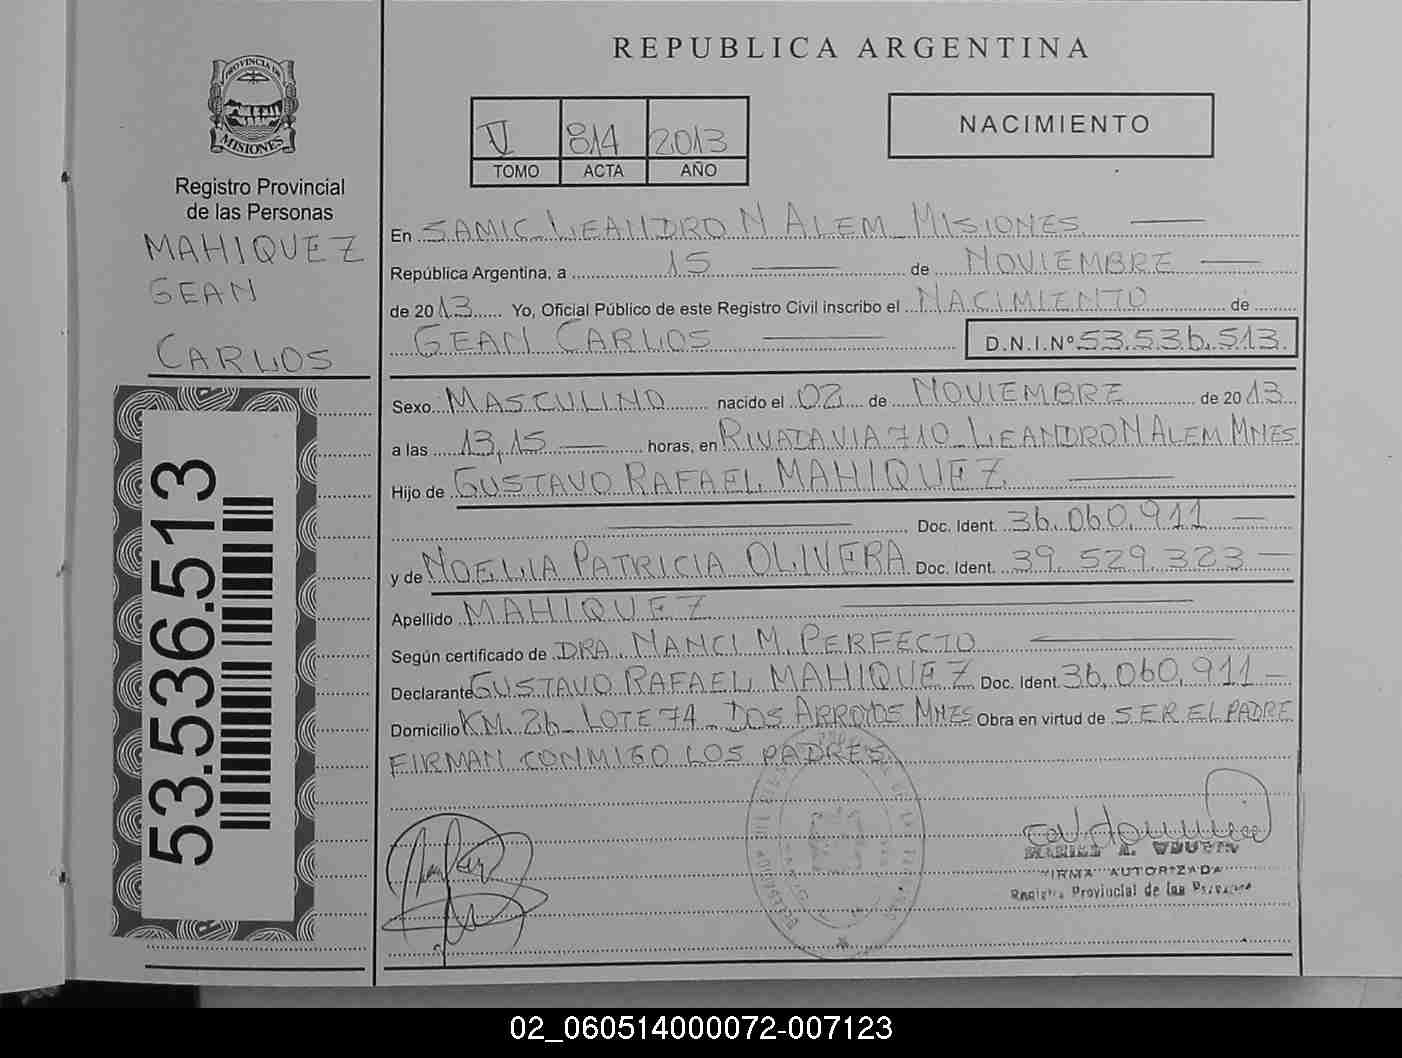 REPUBLICA ARGENTINA
PROVINCIA DE
MISIONES
Registro Provincial
de las Personas
MAHIQUEZ
GEAN
CARLOS
53.536.513
V 814 2013
TOMO ACTA AÑO
NACIMIENTO
En SAMIC_LEANDRO N ALEM_MISIONES
República Argentina, a 15 de NOVIEMBRE
de 2013 Yo, Oficial Público de este Registro Civil inscribo el NACIMIENTO de
GEAN CARLOS D.N.I.Nº 53.536.513.
Sexo MASCULINO nacido el 02 de NOVIEMBRE de 2013
a las 13,15 horas, en RIVADAVIA 710_LEANDRO N ALEM MNES
Hijo de GUSTAVO RAFAEL MAHIQUEZ
Doc. Ident. 36.060.911
y de NOELIA PATRICIA OLIVERA Doc. Ident. 39.529.323
Apellido MAHIQUEZ
Según certificado de DRA. NANCI M. PERFECTO
Declarante GUSTAVO RAFAEL MAHIQUEZ Doc. Ident. 36.060.911
Domicilio KM. 26_ LOTE 74_ DOS ARROYOS MNES Obra en virtud de SER EL PADRE
FIRMAN CONMIGO LOS PADRES
FIRMA AUTORIZADA
Registro Provincial de las Personas
02_060514000072-007123